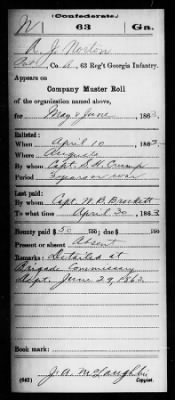 (Confederate.)
N 63 Ga.
A. J. Norton
Pvt, Co. A, 63 Reg't Georgia Infantry.
Appears on
Company Muster Roll
of the organization named above,
for May & June, 1863.
Enlisted:
When April 10, 1863.
Where Augusta
By whom Capt. S. H. Crump
Period 3 years or war
Last paid:
By whom Capt. W. B. Brackett
To what time April 30, 1863.
Bounty paid $50 100; due $ 100
Present or absent Absent
Remarks: Detailed at
Brigade Commissary
Dept. June 29, 1863.
Book mark:
J. A. McLaughlin
(642) Copyist.